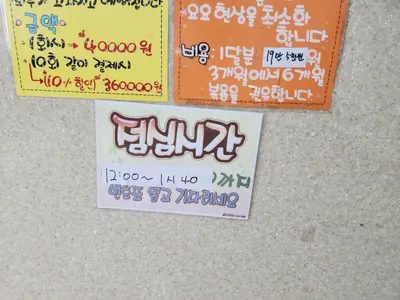 금액
1회시 → 40000원
10회 같이 결제시
→ (10% 할인) 360000원
요요현상을 최소화
합니다
비용: 1달분 19만 5천원
3개월에서 6개월
복용을 권유합니다
점심시간
12:00~ 1시 40 까지
번호표 뽑고 기다리세요